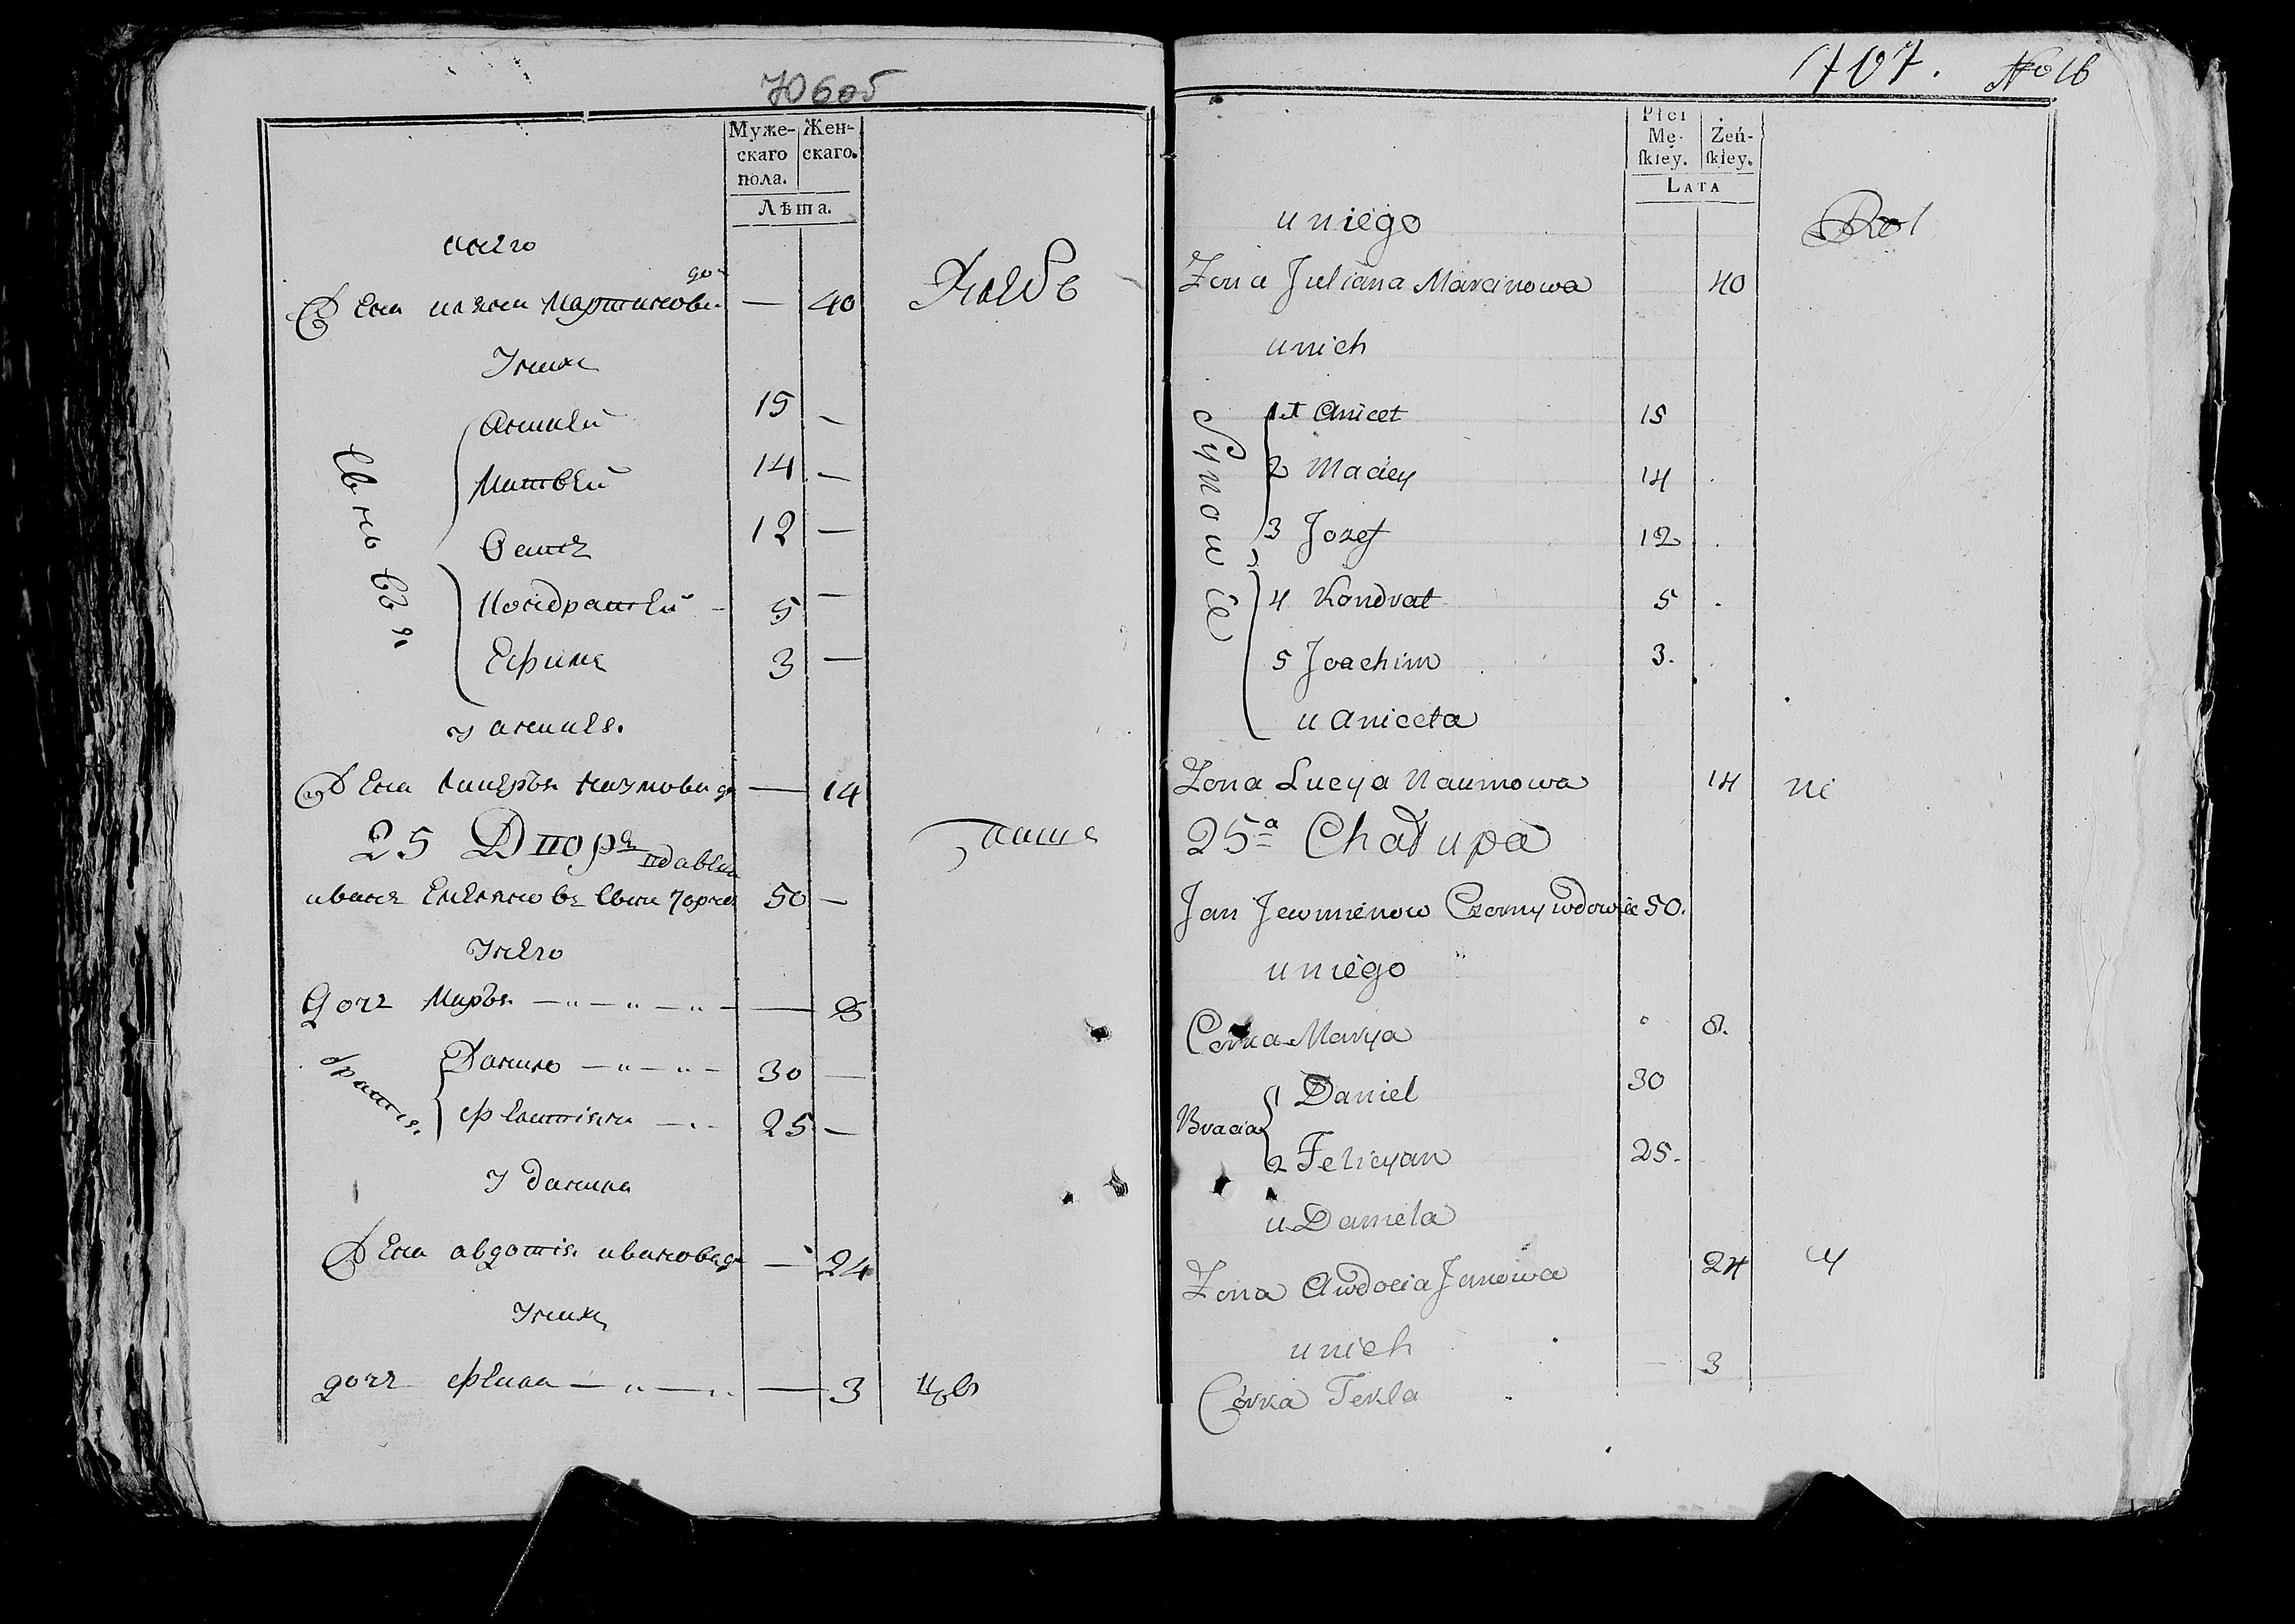 706об
Муже-
скаго
пола.
Жен-
скаго.
Лѣта.
у него
Жена уляна Мартинова до- — 40
Хлебо
У них
Сыновья
Аникей 15 —
Матвей 14 —
Осипъ 12 —
Кондратей 5 —
Ефимъ 3 —
у аникея.
Жена Наумова до — 14
25 Дворъ
иванъ вдовец 50 —
У него
Дочь Марья — 8
братья
Данило 30 —
25 —
У данила
Жена авдотія иванова до — 24
У нихъ
дочь фекла — 3
707. No 16
Płci
Mę-
skiey.
Żeń-
skiey.
LATA
u niego
Rol
Zona Juliana Marcinowa 40
u nich
Synowie
1 Anicet 15
2 Maciey 14
3 Jozef 12
4 Kondrat 5
5 Joachim 3.
u Aniceta
Zona Lucya Naumowa 14 ni
25a Chałupa
Jan Jewmienow Czorny wdowiec 50.
u niego
Córka Marya 8.
Bracia
1 Daniel 30
2 Felicyan 25.
u Daniela
Zona Awdocia Janowa 24
u nich
Córka Tekla 3